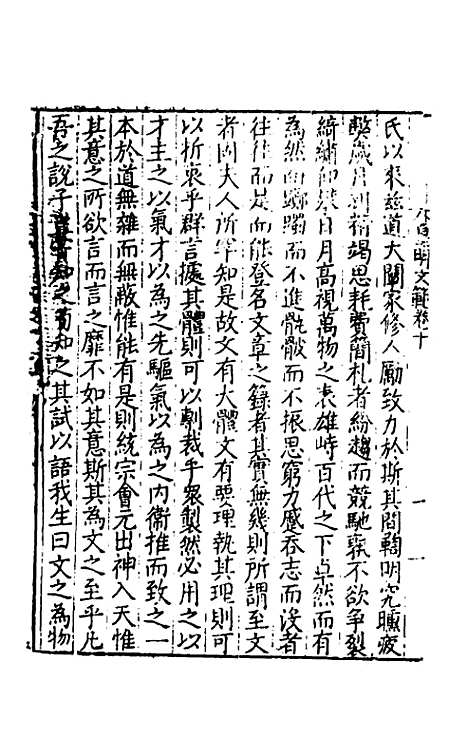 皇明文範卷十 一
氏以來兹道大闡家修人勵致力於斯其間鞫明究曛疲
弊歲月刳精竭思耗費簡札者紛趨而競馳孰不欲爭裂
綺繡仰探日月高視萬物之表雄峙百代之下卓然而有
為然而躑躅而不進骫骳而不振思窮力蹙吞志而没者
往往而是而能登名文章之籙者其實無幾則所謂至文
者固夫人所罕知是故文有大體文有要理執其理則可
以折衷乎群言據其體則可以剸裁乎眾製然必用之以
才主之以氣才以為之先驅氣以為之内衛推而致之一
本於道無雜而無蔽惟能有是則統宗會元出神入天惟
其意之所欲言而言之靡不如其意斯其為文之至乎凡
吾之說子知之苟知之其試以語我生曰文之為物